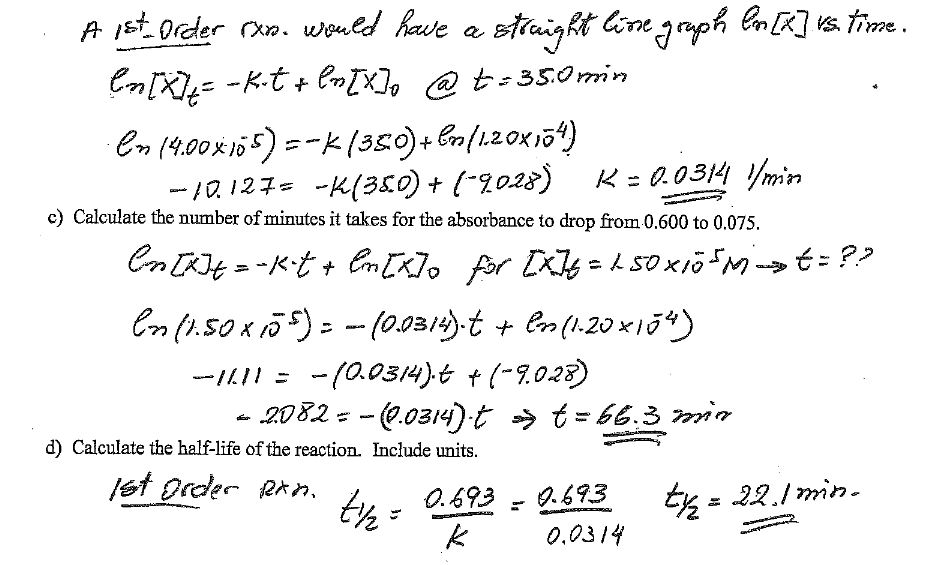 A 1st Order rxn. would have a straight line graph ln[X] vs. Time.
ln[X]t = -K·t + ln[X]₀ @ t = 35.0 min
ln (4.00×10⁻⁵) = -K(35.0) + ln(1.20×10⁻⁴)
-10.127 = -K(35.0) + (-9.028) K = 0.0314 1/min
c) Calculate the number of minutes it takes for the absorbance to drop from 0.600 to 0.075.
ln[X]t = -K·t + ln[X]₀ for [X]t = 1.50×10⁻⁵M → t = ??
ln (1.50 × 10⁻⁵) = -(0.0314)·t + ln(1.20×10⁻⁴)
-11.11 = -(0.0314)·t + (-9.028)
- 2.082 = -(0.0314)·t ⇒ t = 66.3 min
d) Calculate the half-life of the reaction. Include units.
1st Order rxn. t½ = 0.693/k = 0.693/0.0314 t½ = 22.1 min.